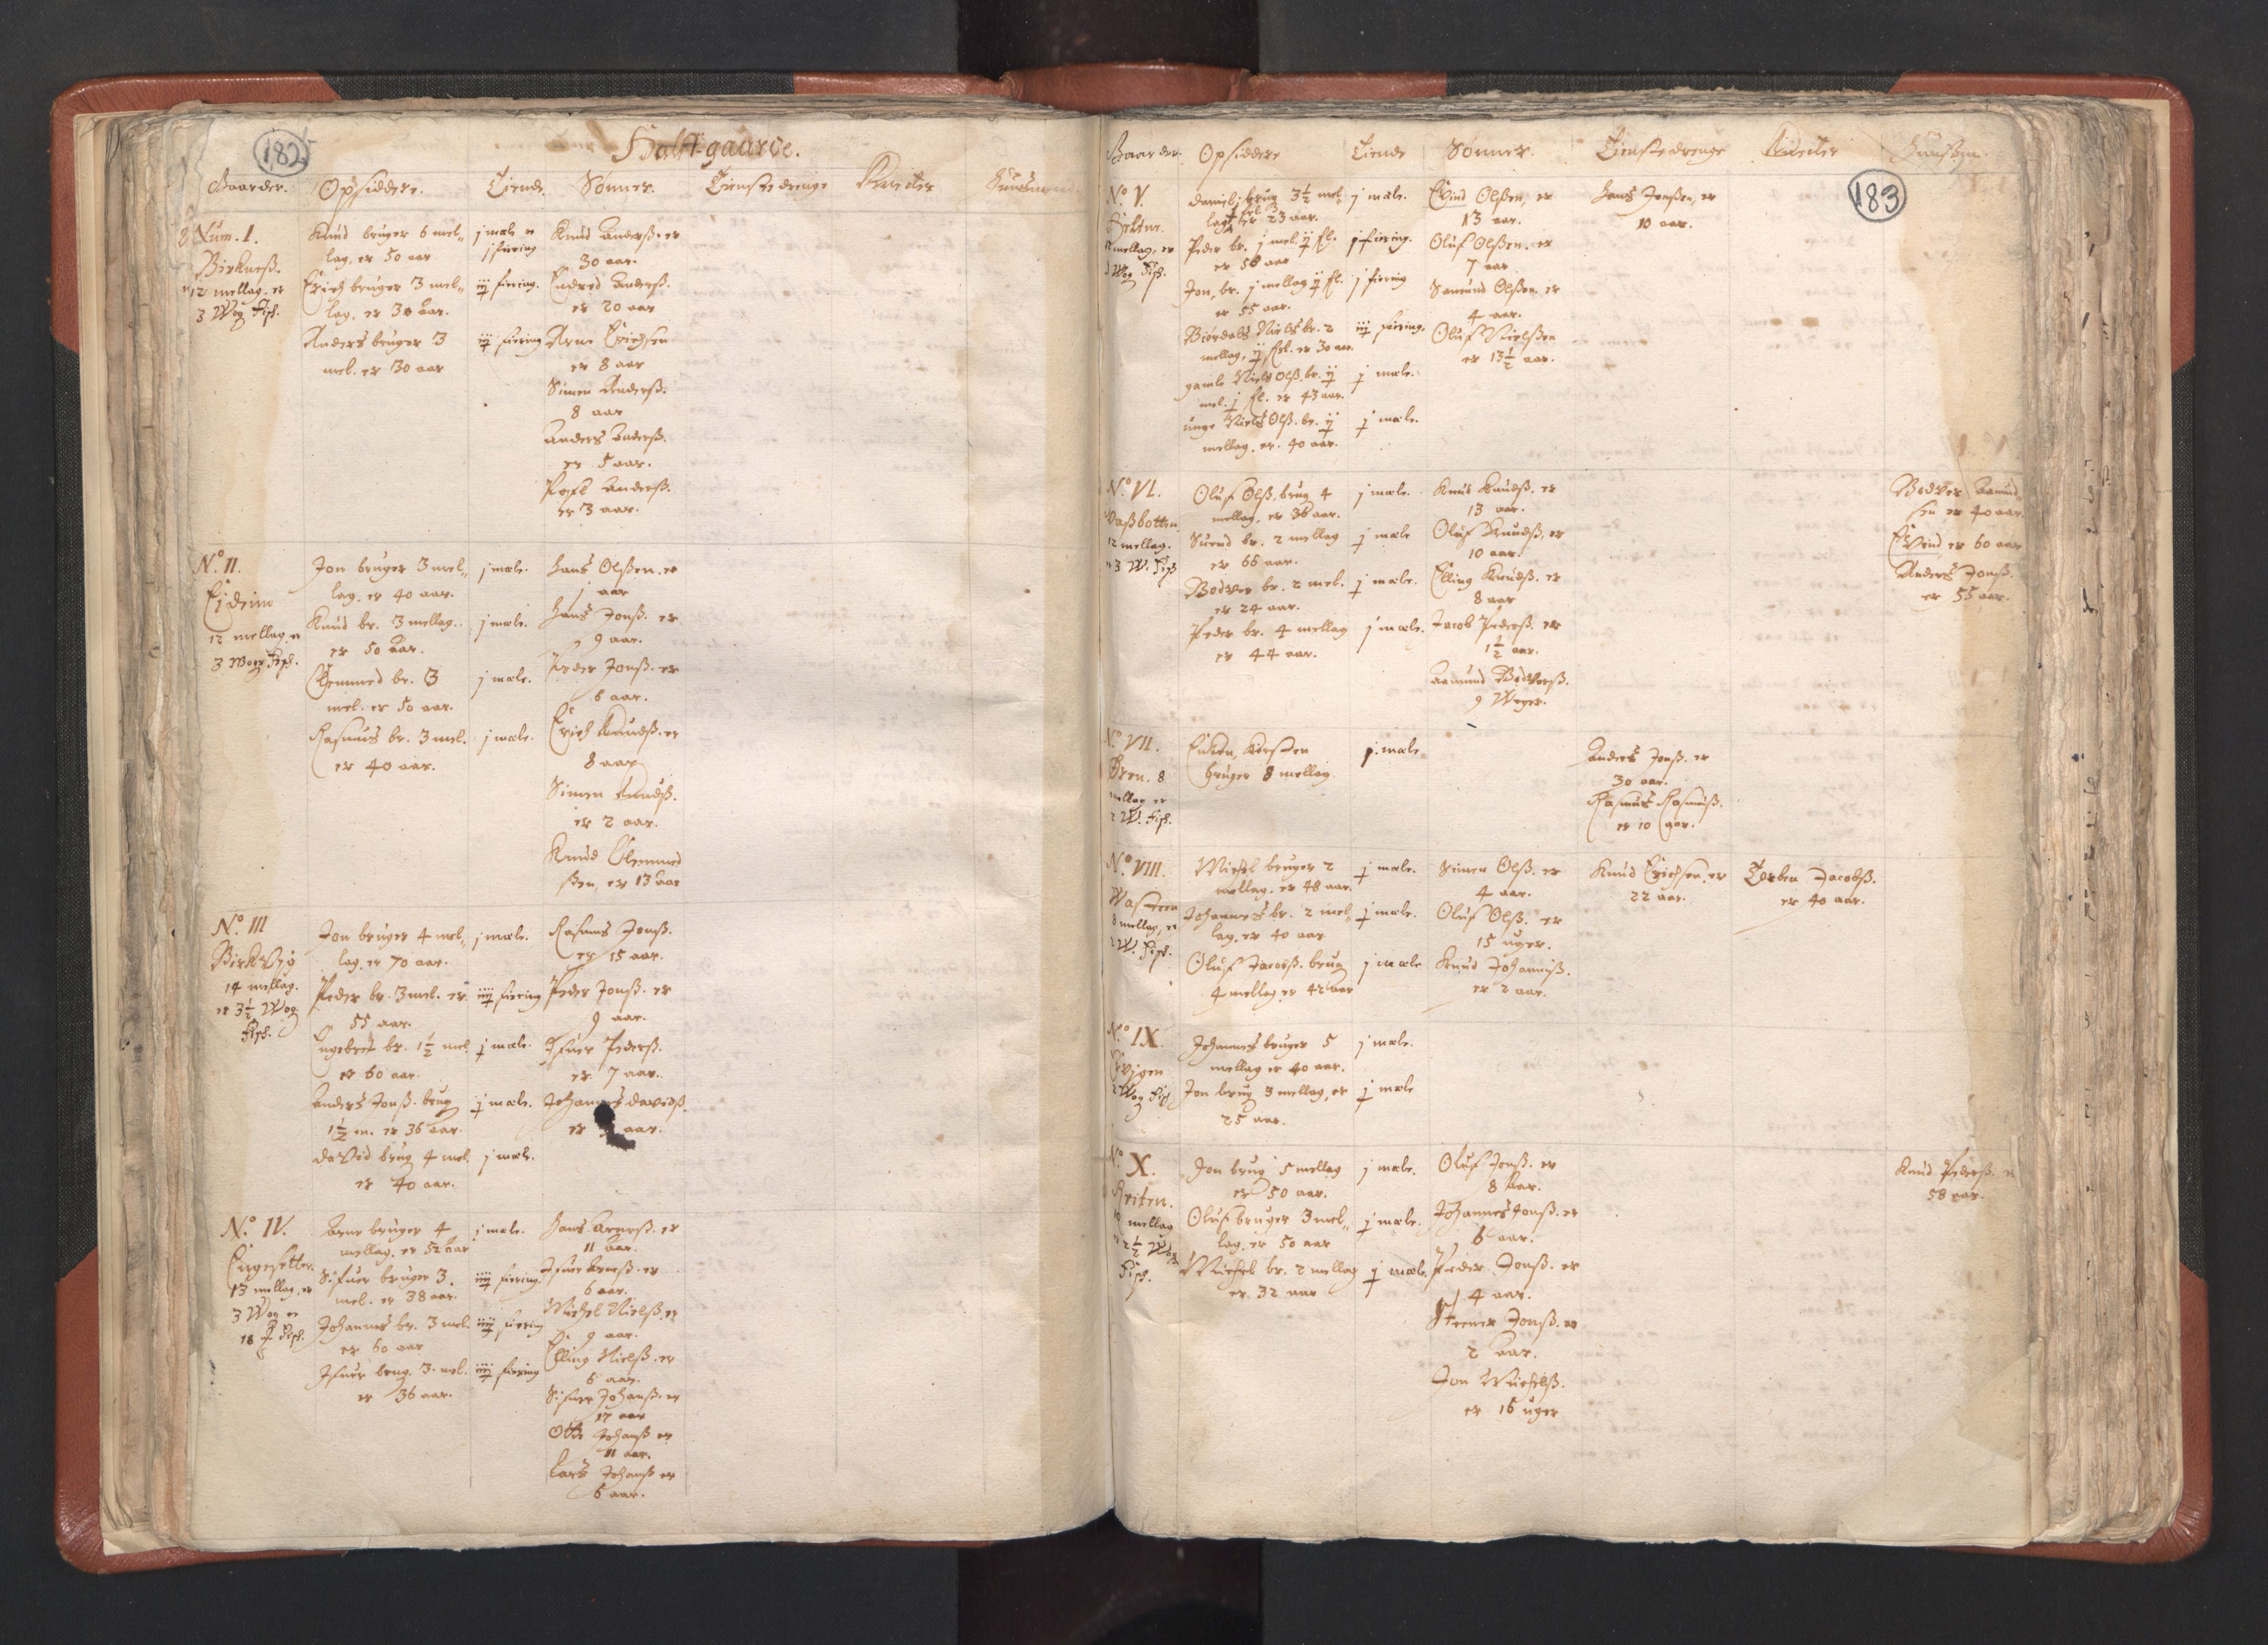 182
Halffgaarde.
Gaarder. Opsiddere. Tiende. Sønner. Tienstedrenge Knecter Huusmænd
Num. I.
Birkneß.
12 mellag. er
3 Wog Fisk.
Knud bruger 6 mel-
lag, er 50 aar
Erich bruger 3 mel-
lag. er 30 aar.
Anders bruger 3
mel. er 30 aar
j mæle er
j fiering
iij fiering.
iij fiering
Knud Anderß. er
30 aar.
Endred Anderß.
er 20 aar
Arne Erichsen
er 8 aar
Simen Anderß.
8 aar
Anders Anderß.
er 5 aar.
Pofl Anderß.
er 3 aar.
No. II.
Eideim
12 mellag er
3 Woger Fisk.
Jon bruger 3 mel-
lag. er 40 aar.
Knud br. 3 mellag.
er 50 aar.
Clemmed br. 3
mel. er 50 aar.
Rasmus br. 3 mel.
er 40 aar.
j mæle.
j mæle.
j mæle.
j mæle.
Hans Olßen. er
1 aar
Hans Jonß. er
9 aar.
Peder Jonß. er
6 aar.
Erich Knudß. er
8 aar
Simen Knudß.
er 2 aar.
Knud Clemmed
ßen, er 13 aar
No. III
Birkevig
14 mellag.
er 3½ Wog
Fisk.
Jon bruger 4 mel-
lag. er 70 aar.
Peder br. 3 mel. er
55 aar.
Engebret br. 1½ mel
er 60 aar.
Anders Jonß. brug
1½ m. er 36 aar.
David brug 4 mel.
er 40 aar.
j mæle.
iiij fiering
j mæle.
j mæle.
j mæle.
Rasmus Jonß.
er 15 aar.
Peder Jonß. er
9 aar.
Ifuer Pederß.
er 7 aar.
Johannes Davidß.
er aar.
No. IV.
Engesetter.
13 mellag, er
3 Wog er
18 Fisk.
Arne bruger 4
mellag. er 52 aar
Sifuer bruger 3.
mel. er 38 aar.
Johannes br. 3 mel.
er 60 aar
Ifuer brug. 3. mel.
er 36 aar.
j mæle.
iiij fiering.
iiij fiering
iiij fiering
Hans Arneß. er
11 aar.
Ifuer Arneß. er
6 aar.
Michel Nielß. er
9 aar.
Elling Nielß. er
6 aar.
Sifuer Johanß. er
17 aar
Otte Johanß er
11 aar.
Lars Johanß er
6 aar.
183
Gaarder. Opsiddere Tiende Sønner. Tienstedrenge Knecter Huusm.
No. V.
mellag. er
Wog Fisk.
Daniel brug 3½ mel-
lag er 23 aar.
Peder br. j mel. ij fl.
er 50 aar
Jon, br. j mellag ij fl.
er 55 aar.
Biørdals Niels br. 2
mellag, ij ferl. er 30 aar.
gamle Niels Olß. br. ij
mel. j fl. er 43 aar.
unge Niels Olß. br. ij
mellag. er. 40 aar.
j mæle.
j fiering.
j fiering
iij fiering.
j mæle.
j mæle.
Evind Olßen, er
13 aar.
Oluf Olßen. er
7 aar
Samund Olßen. er
4 aar.
Oluf Nielßen
er 13½ aar.
Hans Jonßen, er
10 aar.
No. VI.
Vaßbotten
12 mellag.
er 3 W. Fisk
Oluf Olß. brug 4
mellag, er 36 aar.
Suend br. 2 mellag
er 66 aar.
Bodver br. 2 mel.
er 24 aar.
Peder br. 4 mellag
er 44 aar.
j mæle.
j mæle
j mæle.
j mæle.
Knud Knudß. er
13 aar.
Oluf Knudß. er
10 aar.
Elling Knudß. er
8 aar
Jacob Pederß. er
1½ aar.
Aamund Bodverß.
9 Weger.
Bodver Aamund-
sen er 40 aar
Evind er 60 aar
Anders Jonß.
er 55 aar.
No. VII.
Øren. 8
mellag er
2 W. Fisk.
Enken, Kirsten
bruger 8 mellag.
j. mæle
Anders Jonß. er
30 aar.
Rasmus Rasmuß.
er 10 aar.
No. VIII.
Wasteen
8 mellag, er
2 W. Fisk.
Michel bruger 2
mellag. er 48 aar.
Johannes br. 2 mel-
lag. er 40 aar
Oluf Jacobß. brug
4 mellag er 42 aar
j mæle.
j mæle.
j mæle
Simen Olß. er
4 aar.
Oluf Olß. er
15 uger.
Knud Johanniß.
er 2 aar.
Knud Erichsen er
22 aar.
Torben Jacobß.
er 40 aar.
No. IX.
2 Wog Fisk
Johannes bruger 5
mellag er 40 aar.
Jon brug 3 mellag, er
25 aar.
j mæle.
j mæle
No. X.
Kriten.
10 mellag
er 2½ Wog
Fisk.
Jon brug 5 mellag
er 50 aar.
Oluf bruger 3 mel-
lag. er 50 aar
Michel br. 2 mellag
er 32 aar
j mæle.
j mæle.
j mæle.
Oluf Jonß. er
8 aar.
Johannes Jonß. er
6 aar.
Peder Jonß. er
4 aar.
Steener Jonß. er
2 aar.
Jon Michelß.
er 16 uger
Knud Pederß. er
58 aar.